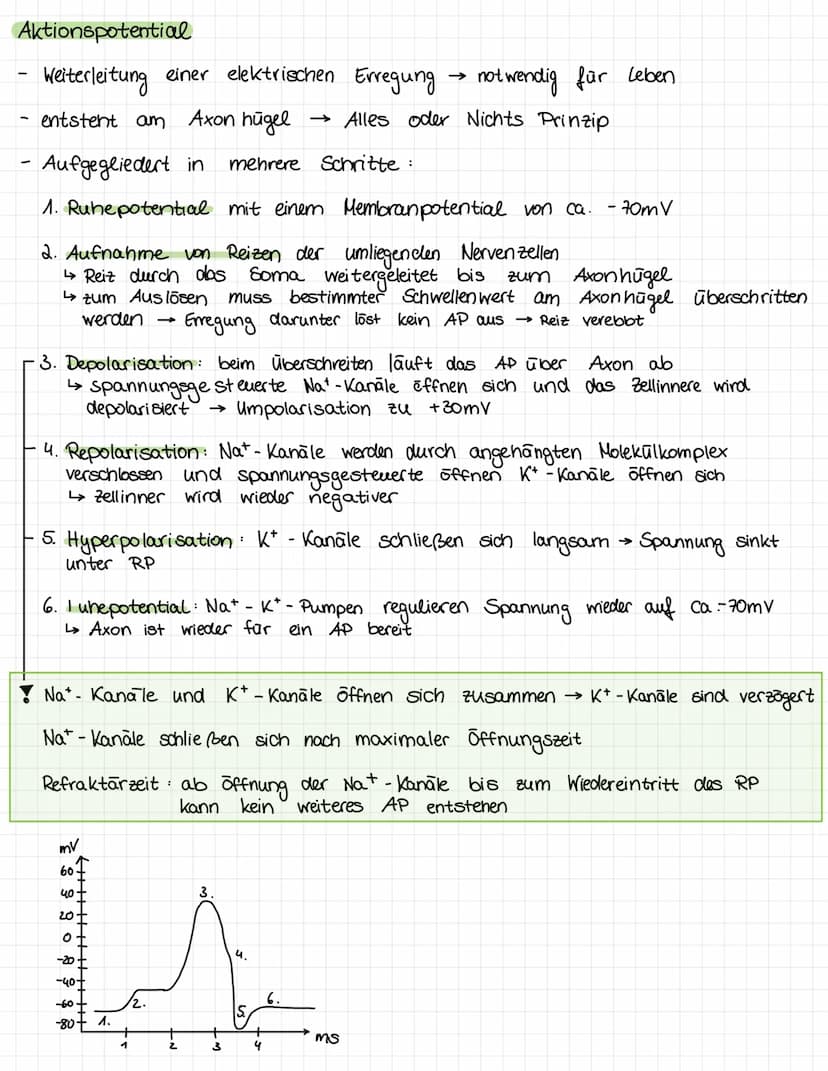 Aktionspotential
- Weiterleitung einer elektrischen Erregung → notwendig für Leben
- entsteht am Axonhügel → Alles oder Nichts Prinzip
- Aufgegliedert in mehrere Schritte :
1. Ruhepotential mit einem Membranpotential von ca. -70mV
2. Aufnahme von Reizen der umliegenden Nervenzellen
↳ Reiz durch das Soma weitergeleitet bis zum Axonhügel
↳ zum Auslösen muss bestimmter Schwellenwert am Axonhügel überschritten
werden → Erregung darunter löst kein AP aus → Reiz verebbt
3. Depolarisation: beim überschreiten läuft das AP über Axon ab
↳ spannungsgesteuerte Na⁺-Kanäle öffnen sich und das Zellinnere wird
depolarisiert → Umpolarisation zu +30mV
4. Repolarisation: Na⁺- Kanäle werden durch angehängten Molekülkomplex
verschlossen und spannungsgesteuerte öffnen K⁺-Kanäle öffnen sich
↳ Zellinner wird wieder negativer
5. Hyperpolarisation : K⁺ - Kanäle schließen sich langsam → Spannung sinkt
unter RP
6. Iuhepotential: Na⁺ - K⁺- Pumpen regulieren Spannung wieder auf ca.-70mV
↳ Axon ist wieder für ein AP bereit
! Na⁺- Kanäle und K⁺ - Kanäle öffnen sich zusammen → K⁺ - Kanäle sind verzögert
Na⁺ - Kanäle schließen sich nach maximaler Öffnungszeit
Refraktärzeit : ab öffnung der Na⁺ - Kanäle bis zum Wiedereintritt des RP
kann kein weiteres AP entstehen
mV
60
40
20
0
-20
-40
-60
-80
1.
2.
3.
4.
5.
6.
1 2 3 4
ms